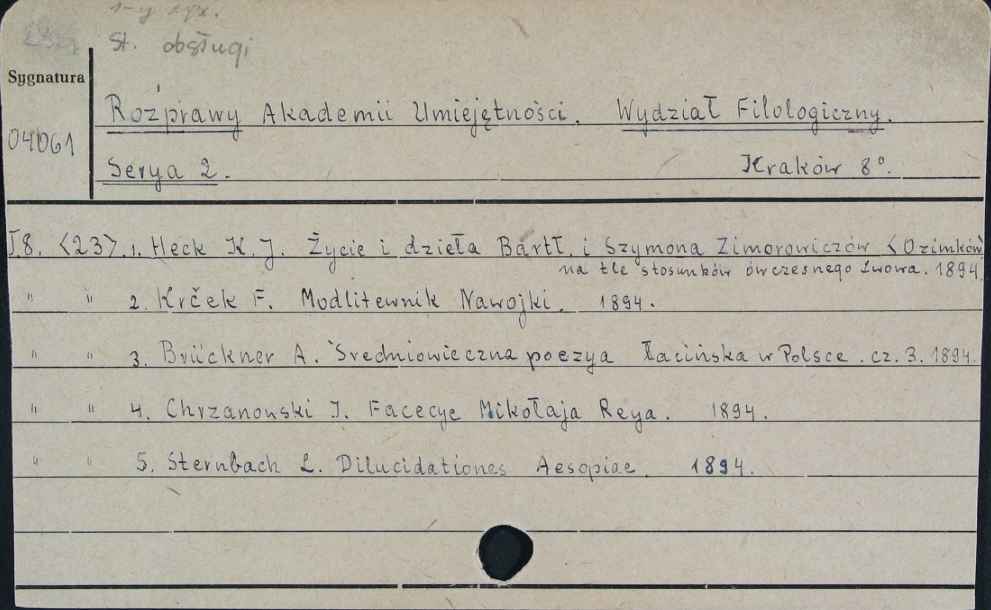 1-y egz.
St. obsługi
Sygnatura
04061
Rozprawy Akademii Umiejętności. Wydział Filologiczny.
Serya 2. Kraków 8°.
T.8. <23>. 1. Heck K. J. Życie i dzieła Bartł. i Szymona Zimorowiczów <Ozimków>
na tle stosunków ówczesnego Lwowa. 1894.
" " 2. Krček F. Modlitewnik Nawojki. 1894.
" " 3. Brückner A. Średniowieczna poezya łacińska w Polsce. cz. 3. 1894.
" " 4. Chrzanowski I. Facecye Mikołaja Reya. 1894.
" " 5. Sternbach L. Dilucidationes Aesopiae. 1894.